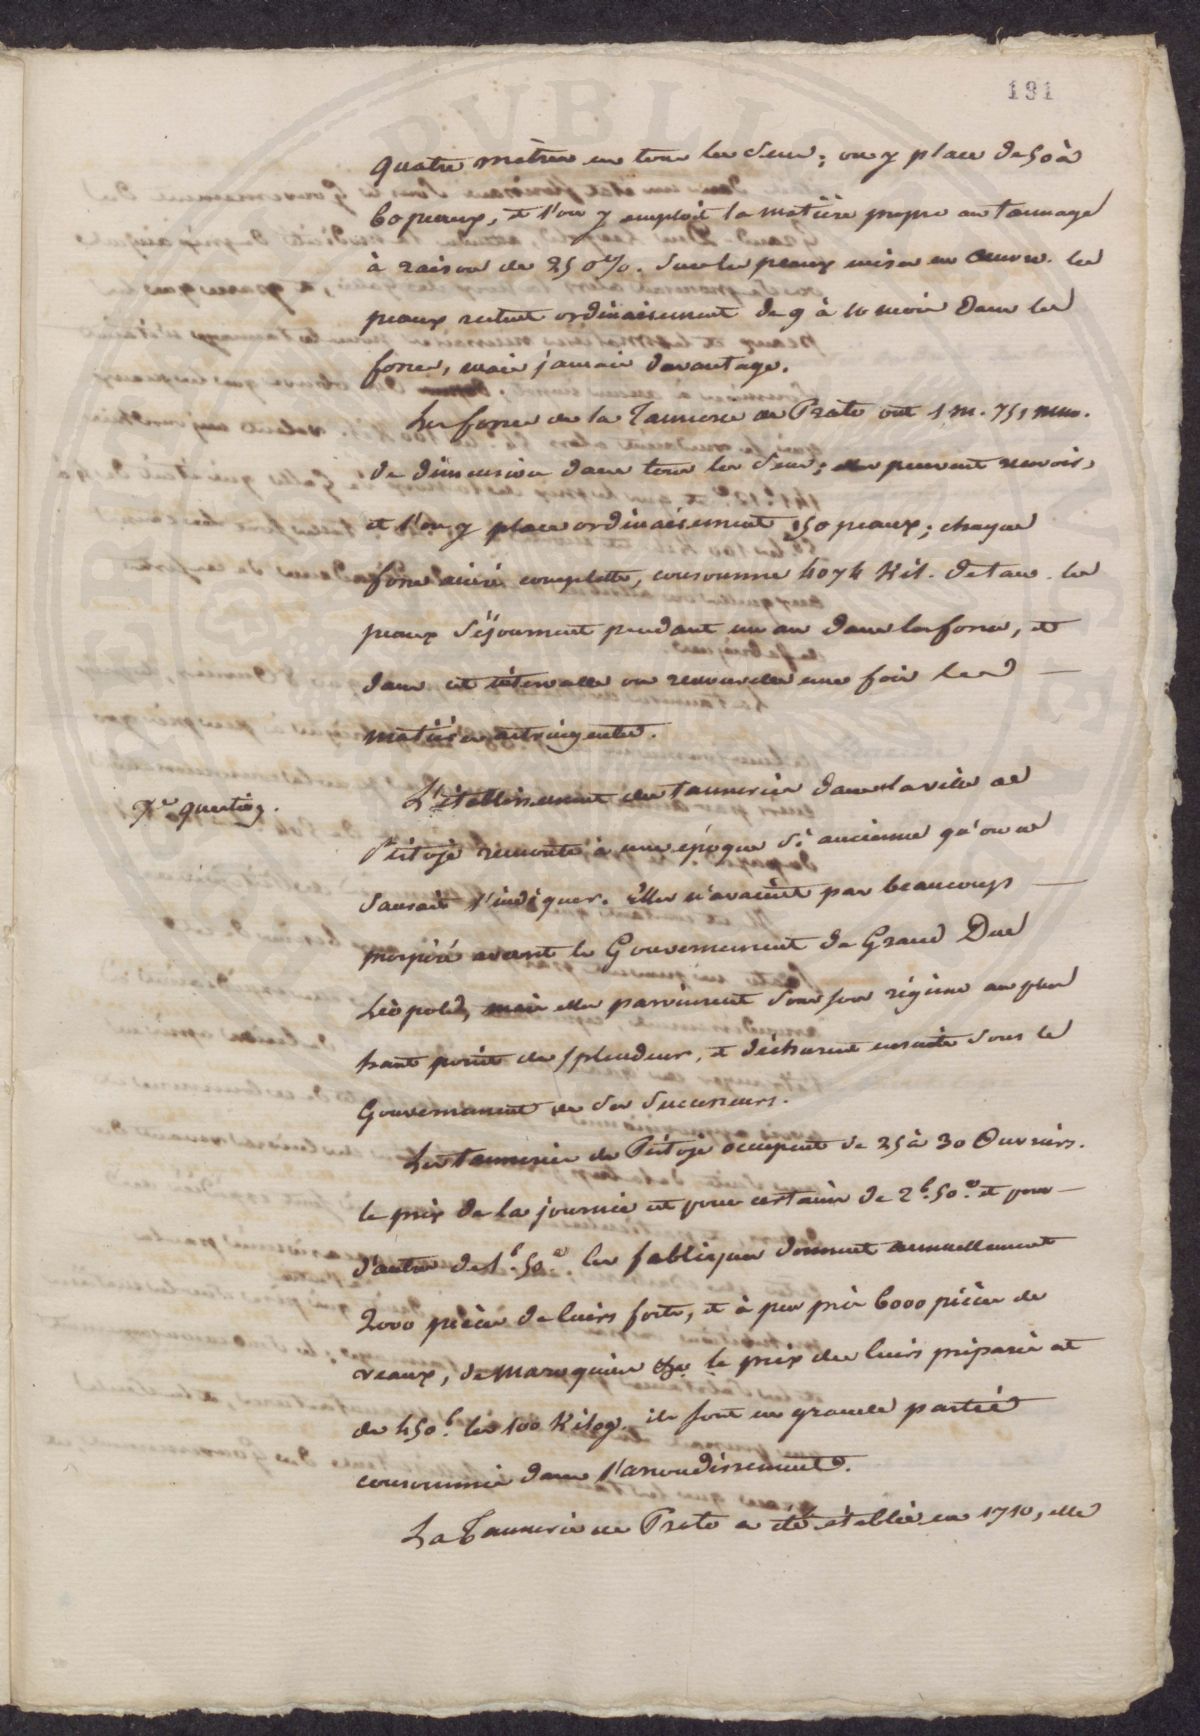 191
quatre mètres en tous les sens; on y place de 50 à
60 peaux, et l'on y emploit la matière propre au tannage
à raison de 25 0%. sur les peaux mises en œuvre. les
peaux restent ordinairement de 9 à 10 mois dans les
fosses, mais jamais davantage.
Les fosses de la Tannerie de Prato ont 1 m. 751 mm.
de dimension dans tous les sens; elles peuvent recevoir,
et l'on y place ordinairement 150 peaux; chaque
fosse ainsi complette, consomme 4074 Kil. de tan. les
peaux séjournent pendant un an dans les fosses, et
dans cet intervalle on renouvelle une fois les
matières astringentes.
Xe. question.
L'établissement des tanneries dans la ville de
Pistoje remonte à une époque si ancienne qu'on ne
saurait l'indiquer. Elles n'avaient pas beaucoup
prospéré avant le Gouvernement du Grand Duc
Léopold, mais elles parvinrent sous son régime au plus
haut point de splendeur, et déchurent ensuite sous le
Gouvernement de ses Successeurs.
Les tanneries de Pistoje occupent de 25 à 30 Ouvriers.
le prix de la journée est pour certains de 2f. 50c. et pour
d'autres de 1f. 50c. les fabriques donnent annuellement
2000 pièces de cuirs forts, et à peu près 6000 pièces de
veaux, de maroquins &c. le prix des cuirs préparés est
de 450f. les 100 Kilog. ils sont en grande partie
consommés dans l'arrondissement.
La Tannerie de Prato a été établie en 1710, elle